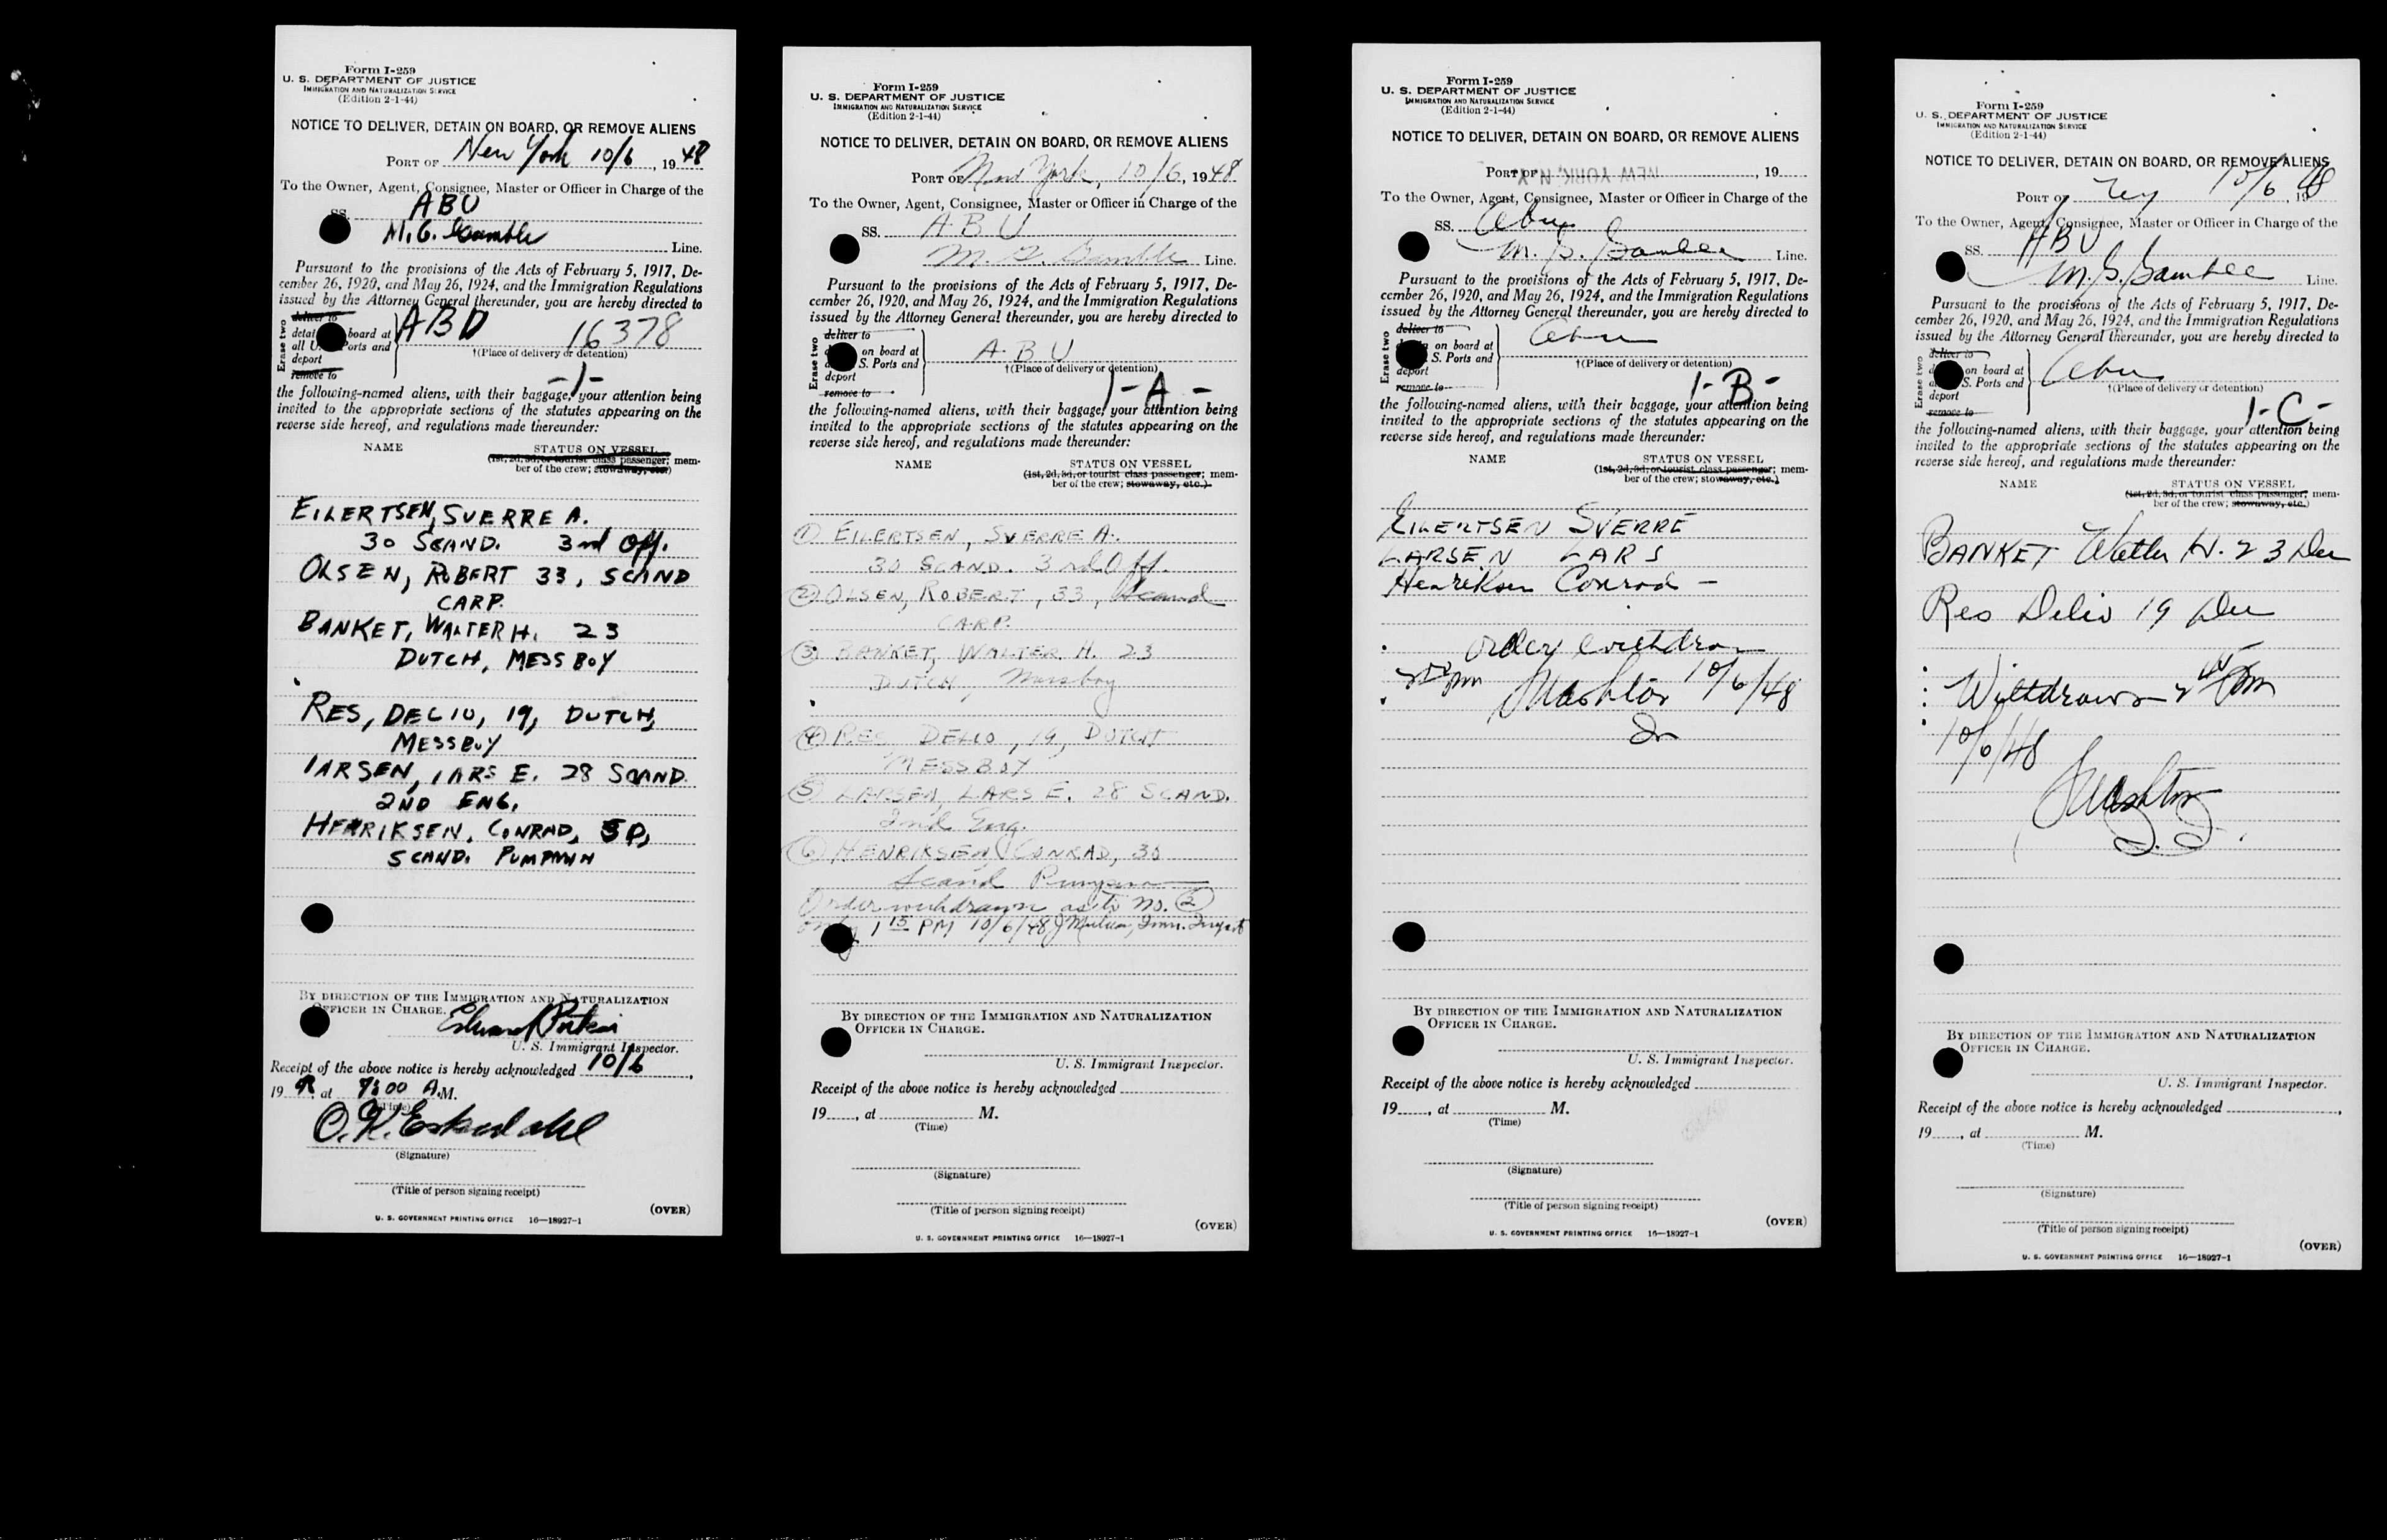 Form I-259
U. S. DEPARTMENT OF JUSTICE
IMMIGRATION AND NATURALIZATION SERVICE
(Edition 2-1-44)
NOTICE TO DELIVER, DETAIN ON BOARD, OR REMOVE ALIENS
PORT OF New York 10/6, 1948
To the Owner, Agent, Consignee, Master or Officer in Charge of the
SS. ABU
M. G. Gamble Line.
Pursuant to the provisions of the Acts of February 5, 1917, De-
cember 26, 1920, and May 26, 1924, and the Immigration Regulations
issued by the Attorney General thereunder, you are hereby directed to
Erase two
deliver to
board at
all U. Ports and
deport
remove to
16378
†(Place of delivery or detention)
-1-
the following-named aliens, with their baggage, your attention being
invited to the appropriate sections of the statutes appearing on the
reverse side hereof, and regulations made thereunder:
NAME STATUS ON VESSEL
(1st, 2d, 3d, or tourist class passenger; mem-
ber of the crew; stowaway, etc.)
EILERTSEN, SVERRE A.
30 SCAND. 3rd Off.
OLSEN, ROBERT 33, SCAND
CARP.
BANKET, WALTER H. 23
DUTCH, MESSBOY
RES, DELIO, 19, DUTCH,
MESSBOY
LARSEN, LARS E. 28 SCAND.
2ND ENG.
HENRIKSEN, CONRAD, 30,
SCAND. PUMPMAN
BY DIRECTION OF THE IMMIGRATION AND NATURALIZATION
OFFICER IN CHARGE.
Edward
U. S. Immigrant Inspector.
Receipt of the above notice is hereby acknowledged 10/6,
19 , at 9:00 A.M.
(Time)
O. K.
(Signature)
(Title of person signing receipt)
(OVER)
U. S. GOVERNMENT PRINTING OFFICE 16—18927-1
Form I-259
U. S. DEPARTMENT OF JUSTICE
IMMIGRATION AND NATURALIZATION SERVICE
(Edition 2-1-44)
NOTICE TO DELIVER, DETAIN ON BOARD, OR REMOVE ALIENS
PORT OF New York, 10/6, 1948
To the Owner, Agent, Consignee, Master or Officer in Charge of the
SS. ABU
M. G. Gamble Line.
Pursuant to the provisions of the Acts of February 5, 1917, De-
cember 26, 1920, and May 26, 1924, and the Immigration Regulations
issued by the Attorney General thereunder, you are hereby directed to
Erase two
deliver to
on board at
S. Ports and
deport
remove to
ABU
†(Place of delivery or detention)
1-A-
the following-named aliens, with their baggage, your attention being
invited to the appropriate sections of the statutes appearing on the
reverse side hereof, and regulations made thereunder:
NAME STATUS ON VESSEL
(1st, 2d, 3d, or tourist class passenger; mem-
ber of the crew; stowaway, etc.)
① EILERTSEN, SVERRE A.
30 SCAND. 3rd Off.
② OLSEN, ROBERT, 33, Scand
CARP.
③ BANKET, WALTER H. 23
DUTCH, Messboy
④ RES DELIO, 19, DUTCH
MESSBOY
⑤ LARSEN, LARS E. 28 SCAND.
2nd Eng.
⑥ HENRIKSEN, CONRAD, 30
Scand Pumpman
Order withdrawn as to No. ②
only 1 15 PM 10/6/48 Imm. Inspect
BY DIRECTION OF THE IMMIGRATION AND NATURALIZATION
OFFICER IN CHARGE.
U. S. Immigrant Inspector.
Receipt of the above notice is hereby acknowledged
19 , at M.
(Time)
(Signature)
(Title of person signing receipt)
(OVER)
U. S. GOVERNMENT PRINTING OFFICE 16—18927-1
Form I-259
U. S. DEPARTMENT OF JUSTICE
IMMIGRATION AND NATURALIZATION SERVICE
(Edition 2-1-44)
NOTICE TO DELIVER, DETAIN ON BOARD, OR REMOVE ALIENS
PORT OF NEW YORK, N. Y. , 19
To the Owner, Agent, Consignee, Master or Officer in Charge of the
SS. Abu
M. G. Gamble Line.
Pursuant to the provisions of the Acts of February 5, 1917, De-
cember 26, 1920, and May 26, 1924, and the Immigration Regulations
issued by the Attorney General thereunder, you are hereby directed to
Erase two
deliver to
on board at
S. Ports and
deport
remove to
Abu
†(Place of delivery or detention)
1-B-
the following-named aliens, with their baggage, your attention being
invited to the appropriate sections of the statutes appearing on the
reverse side hereof, and regulations made thereunder:
NAME STATUS ON VESSEL
(1st, 2d, 3d, or tourist class passenger; mem-
ber of the crew; stowaway, etc.)
EILERTSEN SVERRE
LARSEN LARS
Henriksen Conrad -
order withdrawn
pm 10/6/48
BY DIRECTION OF THE IMMIGRATION AND NATURALIZATION
OFFICER IN CHARGE.
U. S. Immigrant Inspector.
Receipt of the above notice is hereby acknowledged
19 , at M.
(Time)
(Signature)
(Title of person signing receipt)
(OVER)
U. S. GOVERNMENT PRINTING OFFICE 16—18927-1
Form I-259
U. S. DEPARTMENT OF JUSTICE
IMMIGRATION AND NATURALIZATION SERVICE
(Edition 2-1-44)
NOTICE TO DELIVER, DETAIN ON BOARD, OR REMOVE ALIENS
PORT OF NY 10/6 1948
To the Owner, Agent, Consignee, Master or Officer in Charge of the
SS. ABU
M. G. Gamble Line.
Pursuant to the provisions of the Acts of February 5, 1917, De-
cember 26, 1920, and May 26, 1924, and the Immigration Regulations
issued by the Attorney General thereunder, you are hereby directed to
Erase two
deliver to
on board at
S. Ports and
deport
remove to
Abu
†(Place of delivery or detention)
1-C-
the following-named aliens, with their baggage, your attention being
invited to the appropriate sections of the statutes appearing on the
reverse side hereof, and regulations made thereunder:
NAME STATUS ON VESSEL
(1st, 2d, 3d, or tourist class passenger; mem-
ber of the crew; stowaway, etc.)
BANKET Walter H. 23 Du
Res Delio 19 Du
Withdrawn pm
10/6/48
BY DIRECTION OF THE IMMIGRATION AND NATURALIZATION
OFFICER IN CHARGE.
U. S. Immigrant Inspector.
Receipt of the above notice is hereby acknowledged ,
19 , at M.
(Time)
(Signature)
(Title of person signing receipt)
(OVER)
U. S. GOVERNMENT PRINTING OFFICE 16—18927-1